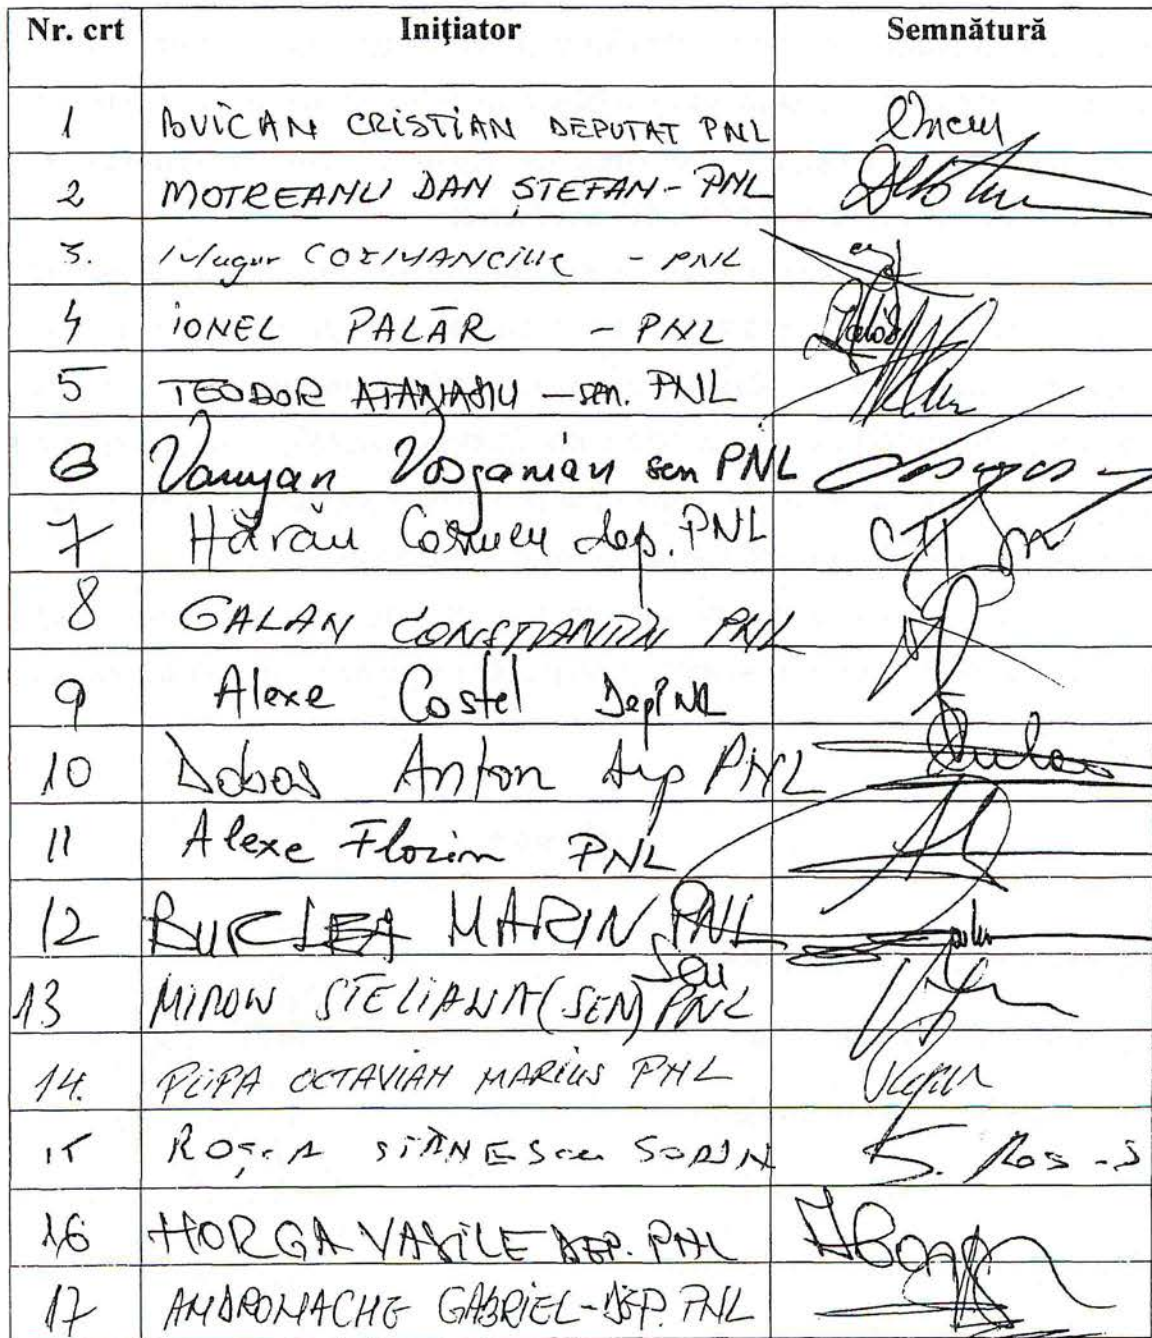 Nr. crt Iniţiator Semnătură
1 BUICAN CRISTIAN DEPUTAT PNL
2 MOTREANU DAN ŞTEFAN - PNL
3. Mugur COZMANCIUC - PNL
4 IONEL PALĂR - PNL
5 TEODOR ATANASIU - sen. PNL
6 Varujan Vosganian sen PNL
7 Hărău Cosmin dep. PNL
8 GALAN CONSTANTIN PNL
9 Alexe Costel Dep PNL
10 Dobos Anton dep PNL
11 Alexe Florin PNL
12 BURLEA MARIN PNL
Sen
13 MIRON STELIANA (SEN) PNL
14. POPA OCTAVIAN MARIUS PNL
15 ROŞCA STĂNESCU SORIN S. Ros -S
16 HORGA VASILE DEP. PNL
17 ANDRONACHE GABRIEL - DEP. PNL